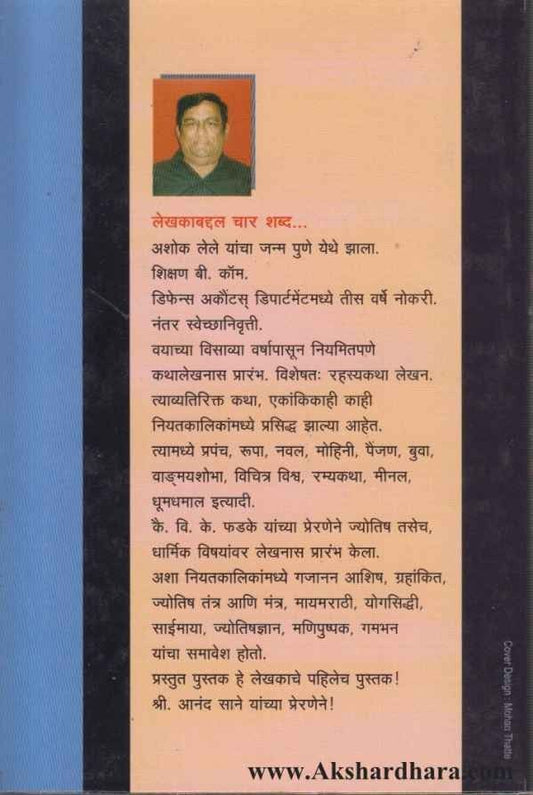 लेखकाबद्दल चार शब्द...
अशोक लेले यांचा जन्म पुणे येथे झाला.
शिक्षण बी. कॉम.
डिफेन्स अकौंटस् डिपार्टमेंटमध्ये तीस वर्षे नोकरी.
नंतर स्वेच्छानिवृत्ती.
वयाच्या विसाव्या वर्षापासून नियमितपणे
कथालेखनास प्रारंभ. विशेषतः रहस्यकथा लेखन.
त्याव्यतिरिक्त कथा, एकांकिकाही काही
नियतकालिकांमध्ये प्रसिद्ध झाल्या आहेत.
त्यामध्ये प्रपंच, रूपा, नवल, मोहिनी, पैंजण, बुवा,
वाङ्मयशोभा, विचित्र विश्व, रम्यकथा, मीनल,
धूमधमाल इत्यादी.
कै. वि. के. फडके यांच्या प्रेरणेने ज्योतिष तसेच,
धार्मिक विषयांवर लेखनास प्रारंभ केला.
अशा नियतकालिकांमध्ये गजानन आशिष, ग्रहांकित,
ज्योतिष तंत्र आणि मंत्र, मायमराठी, योगसिद्धी,
साईमाया, ज्योतिषज्ञान, मणिपुष्पक, गमभन
यांचा समावेश होतो.
प्रस्तुत पुस्तक हे लेखकाचे पहिलेच पुस्तक!
श्री. आनंद साने यांच्या प्रेरणेने!
Cover Design : Mohan Thatte
www.Akshardhara.com